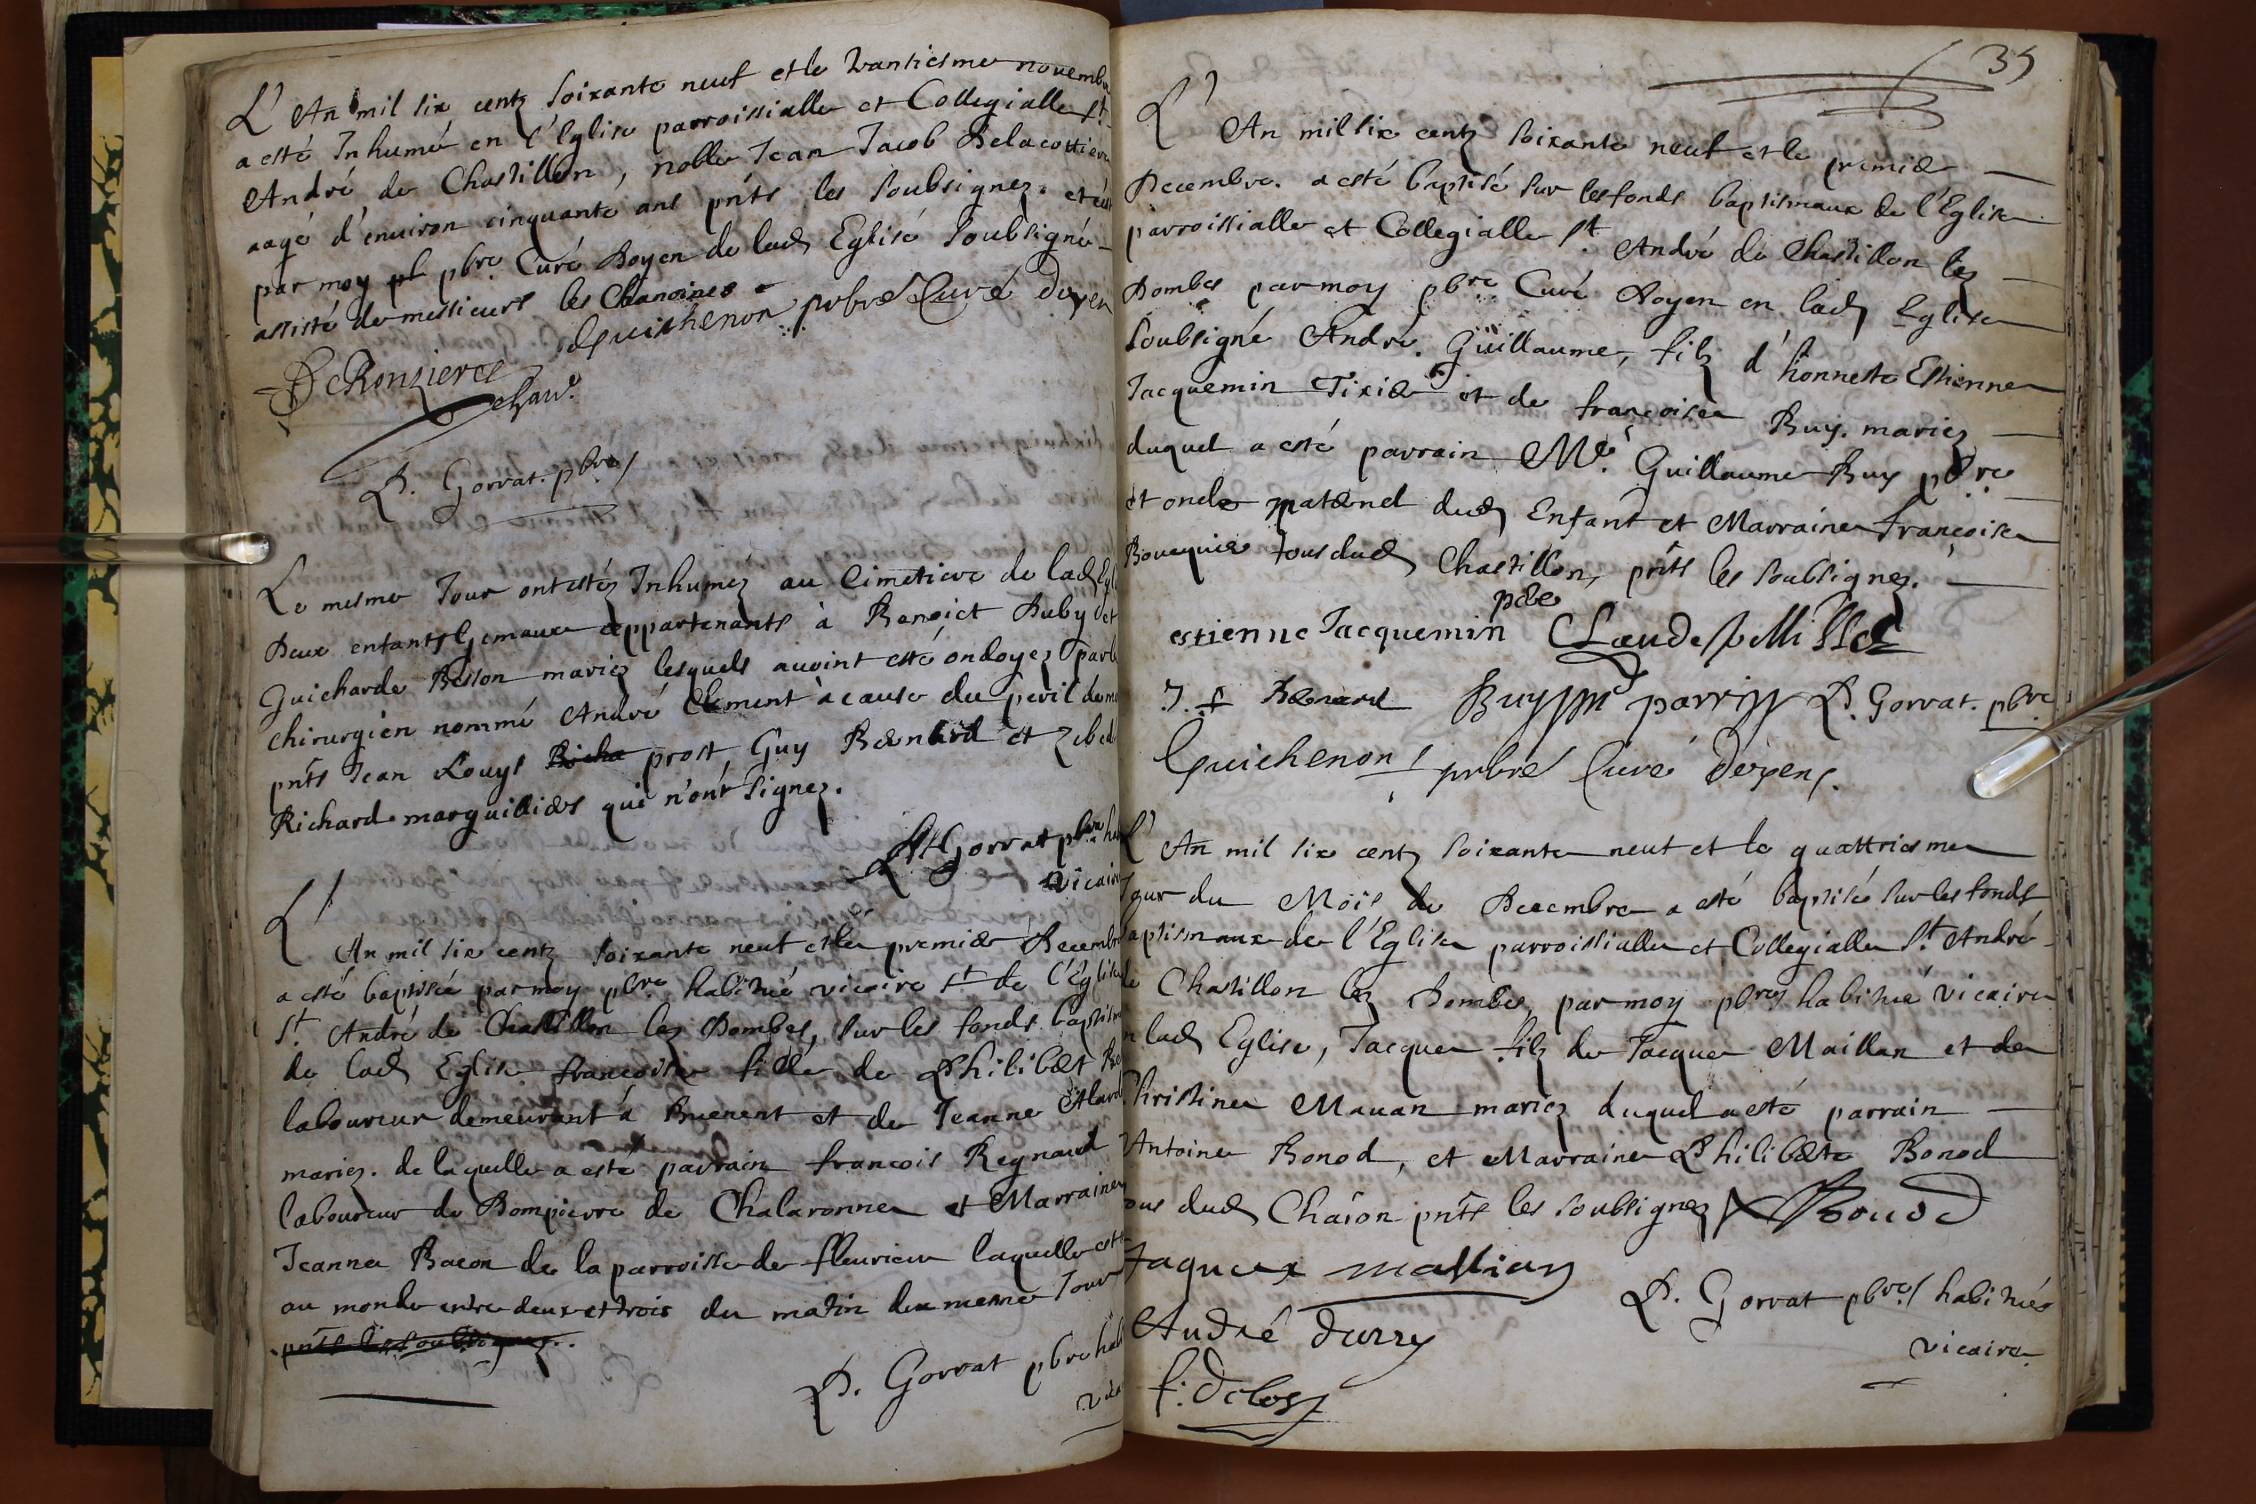 L'An mil six centz soixante neuf et le vantiesme novembre
a esté Inhumé en l'Eglise parroissialle et Collegialle St
André de Chastillon, noble Jean Jacob Delacottiere
aagé d'environ cinquante ans pnts les soubsignez. et
par moy pbre Curé Doyen de lad Eglise soubsigné
assisté de messieurs les Chanoines
Guichenon prbre Curé Doyen
DeRonzieres
chan.
P. Gorrat. pbre
Le mesme Jour ont estéz Inhuméz au Cimetiere de lad
Deux enfants Gemaux appartenants à Benoict Duby et
Guicharde Besson mariez lesquels avoint esté ondoyez par le
chirurgien nommé André Clement à cause du peril de
pnts Jean Louys prost, Guy Bernard et
Richard marguilliers qui n'ont signez.
Gorrat pbre
vicaire
L'An mil six centz soixante neuf et le premier Decembre
a esté baptisée par moy pbre habitué vicaire St de l'Eglise
St André de Chastillon les Dombes, sur les fonds baptism
de lad Eglise francoise fille de Philibert
laboureur demeurant à Bruenent et de Jeanne
mariez. de laquelle a esté parrain francois Regnaud
laboureur de Dompierre de Chalaronne et Marraine
Jeanne Bacon de la parroisse de fleurieu laquelle est
au monde entre deux et trois du matin du mesme Jour
pnts les soubsignez.
P. Gorrat pbre hab
35
L'An mil six centz soixante neuf et le premier
Decembre. a esté baptisé sur les fonds baptismaux de l'Eglise
parroissialle et Collegialle St André de Chastillon les
Dombes par moy pbre Curé Doyen en lad Eglise
soubsigné André. Guillaume, filz d'honneste Estienne
Jacquemin Tixier et de francoise Buy. mariez
duquel a esté parrain Mre Guillaume Buy pbre
et oncle maternel dud Enfant et Marraine francoise
Bouquier tous dud Chastillon, pnts les soubsignez.
estienne Jacquemin pere Claude pelliSSeE
J. f Benard Buy pbr parrin P. Gorrat. pbre
Guichenon prbre Curé Doyen.
L'An mil six centz soixante neuf et le quattriesme
Jour du Mois de Decembre a esté baptisé sur les fonds
baptismaux de l'Eglise parroissialle et Collegialle St André
de Chastillon les Dombes, par moy pbre habitué vicaire
en lad Eglise, Jacque filz de Jacque Maillan et de
Christine Mauan mariez duquel a esté parrain
Antoine Bonod, et Marraine Philiberte Bonod
tous dud Chaôn pnts les soubsignez Bonod
Jaques mallian
P. Gorrat pbre habitués
vicaire
André durry
f. Delos